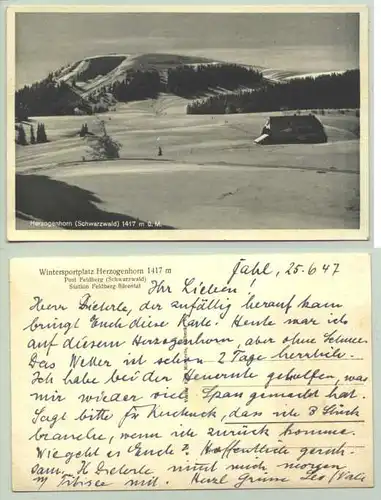 Herzogenhorn (Schwarzwald) 1417 m ü. M.
Wintersportplatz Herzogenhorn 1417 m
Post Feldberg (Schwarzwald)
Station Feldberg-Bärental
Fahl, 25.6 47
Ihr Lieben!
Herr Dieterle, der zufällig herauf kam
bringt Euch diese Karte. Heute war ich
auf diesem Herzogenhorn, aber ohne Schnee
Das Wetter ist schon 2 Tage herrlich.
Ich habe bei der Heuernte geholfen, was
mir wieder viel Spass gemacht hat.
Sagt bitte Fr Kuckuck, dass ich 3 Stück
brauche, wenn ich zurück komme.
Wie geht es Euch? Hoffentlich
H Dieterle nimmt mich morgen
Titisee mit. Herzl Grüsse